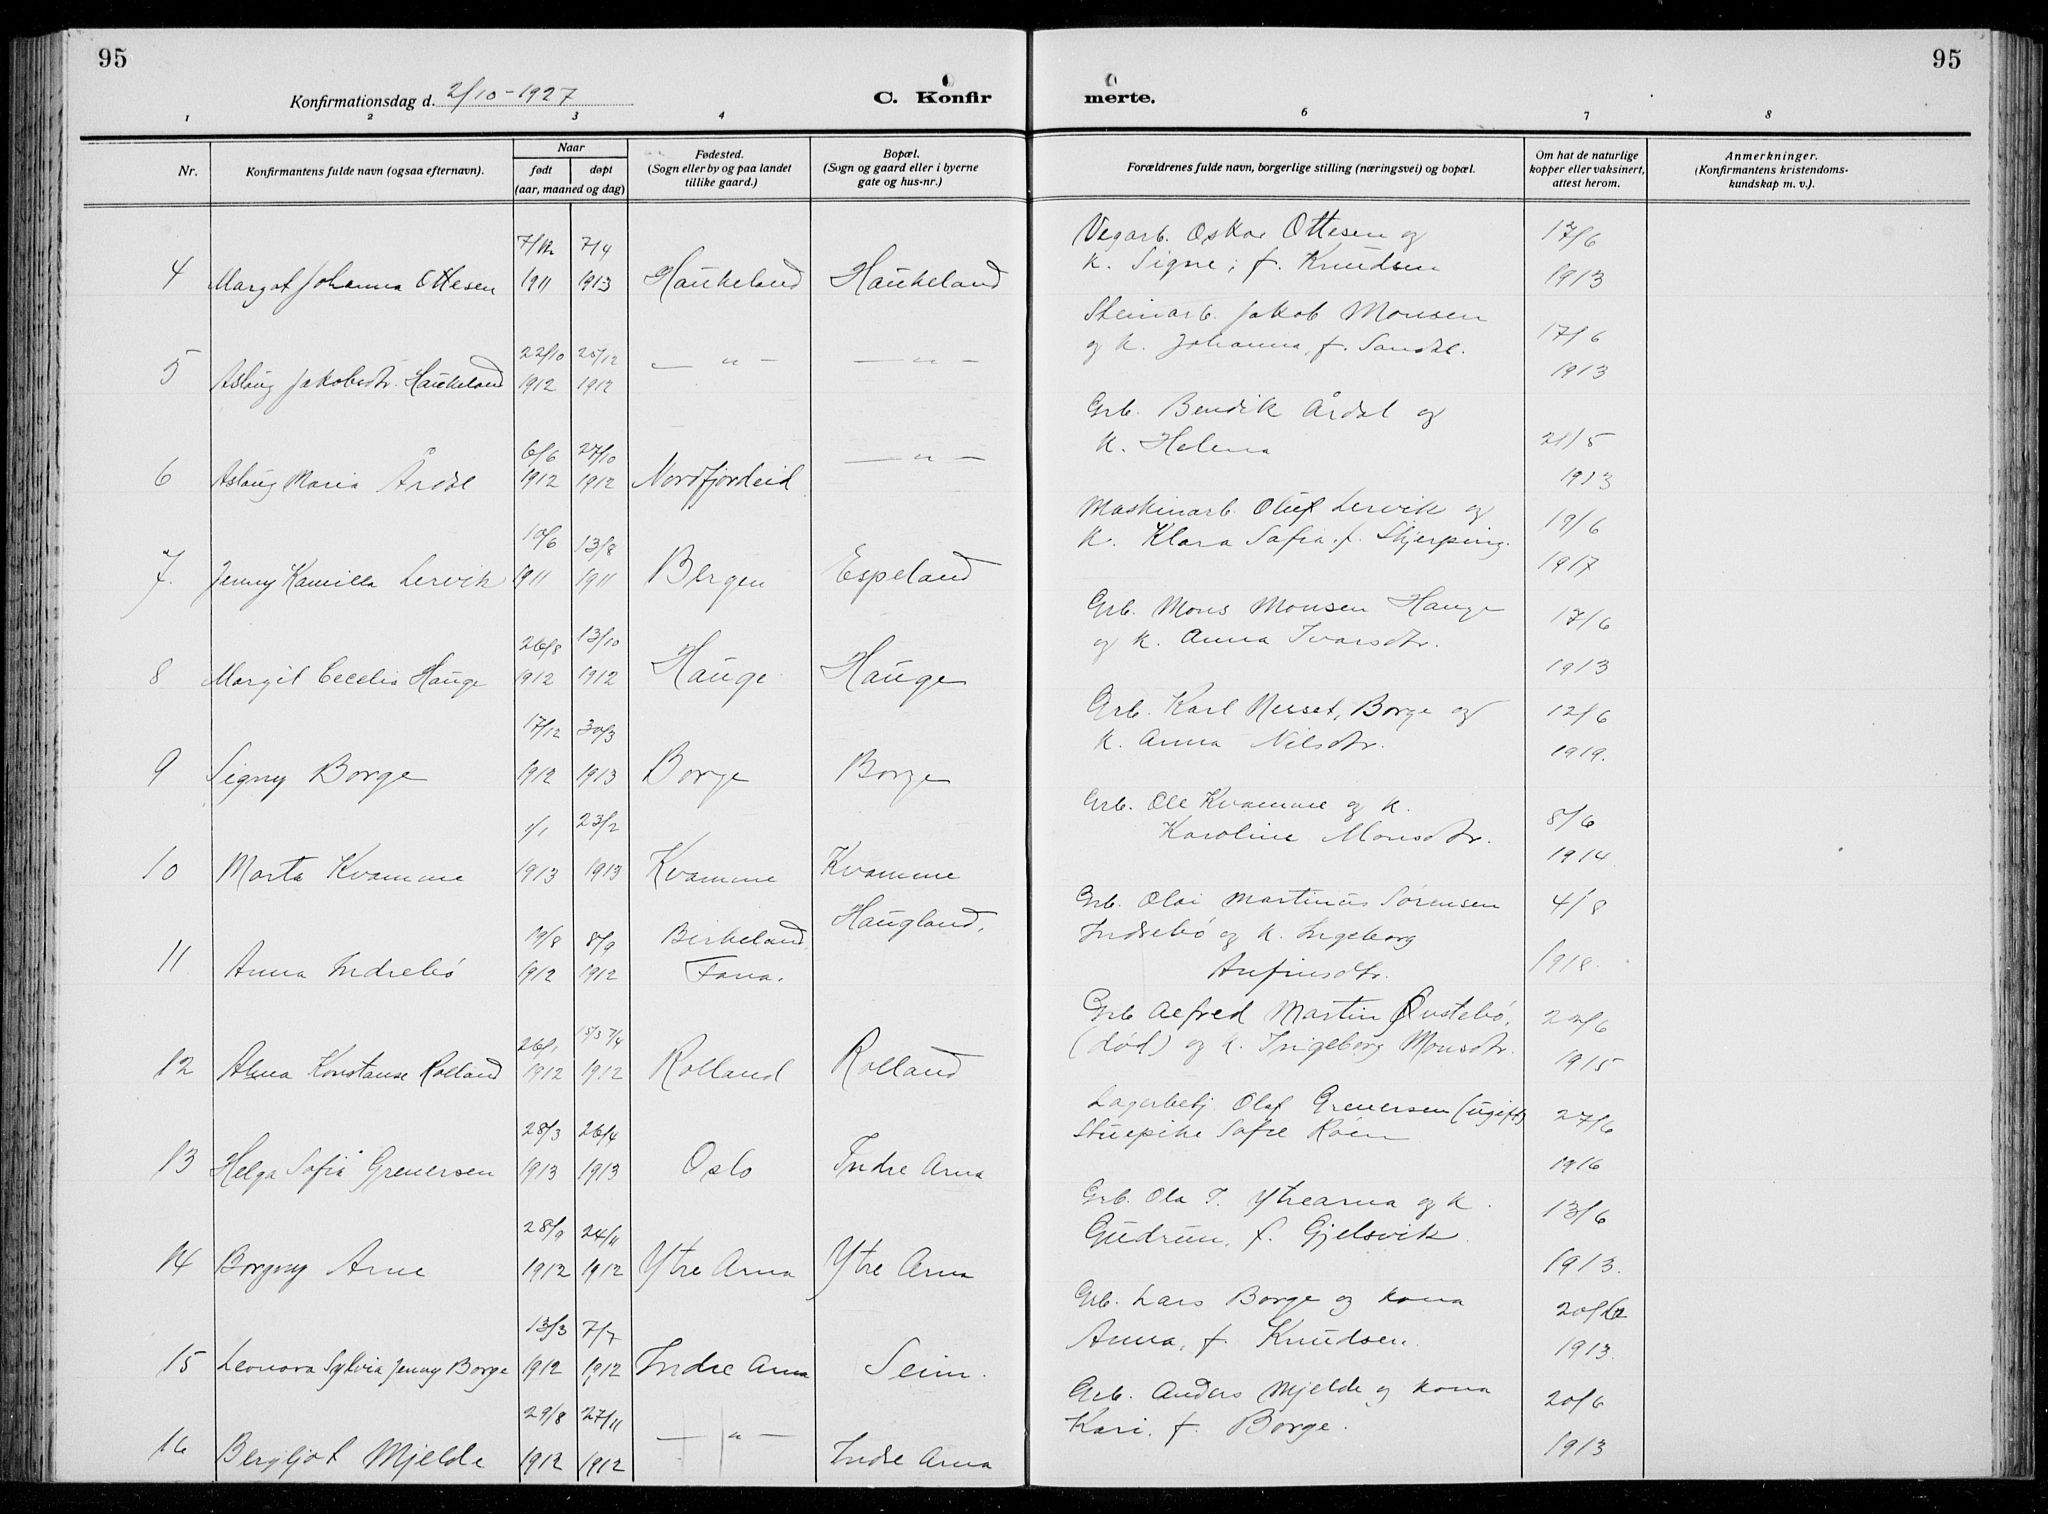 95
Konfirmationsdag d. 2/10-1927
C. Konfir
1 2 3 4
Nr.
Konfirmantens fulde navn (ogsaa efternavn).
Naar
født døpt
(aar, maaned og dag)
Fødested.
(Sogn eller by og paa landet
tillike gaard.)
Bopæl.
(Sogn og gaard eller i byerne
gate og hus-nr.)
7/12 7/4
4 Margot Johanna Ottesen 1911 1913 Haukeland Haukeland
22/10 25/12
5 Aslaug Jakobsdtr. Haukeland 1912 1912 — " — — " —
6/6 27/10
6 Aslaug Maria Årdal 1912 1912 Nordfjordeid — " —
10/6 13/8
7. Jenny Kamilla Lervik 1911 1911 Bergen Espeland
26/8 13/10
8 Margit Cecelia Hauge 1912 1912 Hauge Hauge
17/12 30/3
9 Signy Borge 1912 1913 Borge Borge
1/1 23/2
10 Marta Kvamme 1913 1913 Kvamme Kvamme
19/8 8/9 Birkeland, Haugland.
11 Anna Indrebö 1912 1912 Fana.
26/1 15/3 7/4
12 Alma Konstanse Rolland 1912 1912 Rolland Rolland
28/3 26/4
13 Helga Sofia Grenersen 1913 1913 Oslo Indre Arna
28/9 24/11
14 Borgny Arne 1912 1912 Ytre Arna Ytre Arna
13/3 7/7
15 Leonora Sylvia Jenny Borge 1912 1912 Indre Arna Seim.
29/8 27/11
16 Bergljot Mjelde 1912 1912 — " — Indre Arna
95
merte.
6 7 8
Forældrenes fulde navn, borgerlige stilling (næringsvei) og bopæl.
Om hat de naturlige
kopper eller vaksinert,
attest herom.
Anmerkninger.
(Konfirmantens kristendoms-
kundskap m. v.).
Vegarb. Oskar Ottesen og 17/6
k. Signe, f. Knudsen 1913
Steinarb. Jakob Monsen 17/6
og k. Johanna, f. Sandal. 1913
Grb. Bendik Årdal og
k. Helena 21/5
1913
Maskinarb. Oluf Lervik og 19/6
k. Klara Sofia, f. Skjerping. 1917
Grb. Mons Monsen Hauge 17/6
og k. Anna Ivarsdtr. 1913
Grb. Karl Nesset, Borge og 12/6
k. Anna Nilsdtr. 1919.
Grb. Ole Kvamme og k. 8/6
Karoline Monsdtr. 1914
Grb. Olai Martinus Sörensen 4/8
Indrebö og k. Ingeborg
Anfinsdtr. 1918.
Grb Alfred Martin Øvstebö, 22/6
(död) og k. Ingeborg Monsdtr. 1915
Lagerbetj. Olaf Grenersen (ugift) 27/6
Stuepike Sofie Roen 1916
Grb. Ola T. Ytrearna og k. 13/6
Gudrun, f. Gjelsvik. 1913.
Grb. Lars Borge og kona
Anna, f. Knudsen. 1913.
Grb. Anders Mjelde og kona 20/6
Kari, f. Borge. 1913